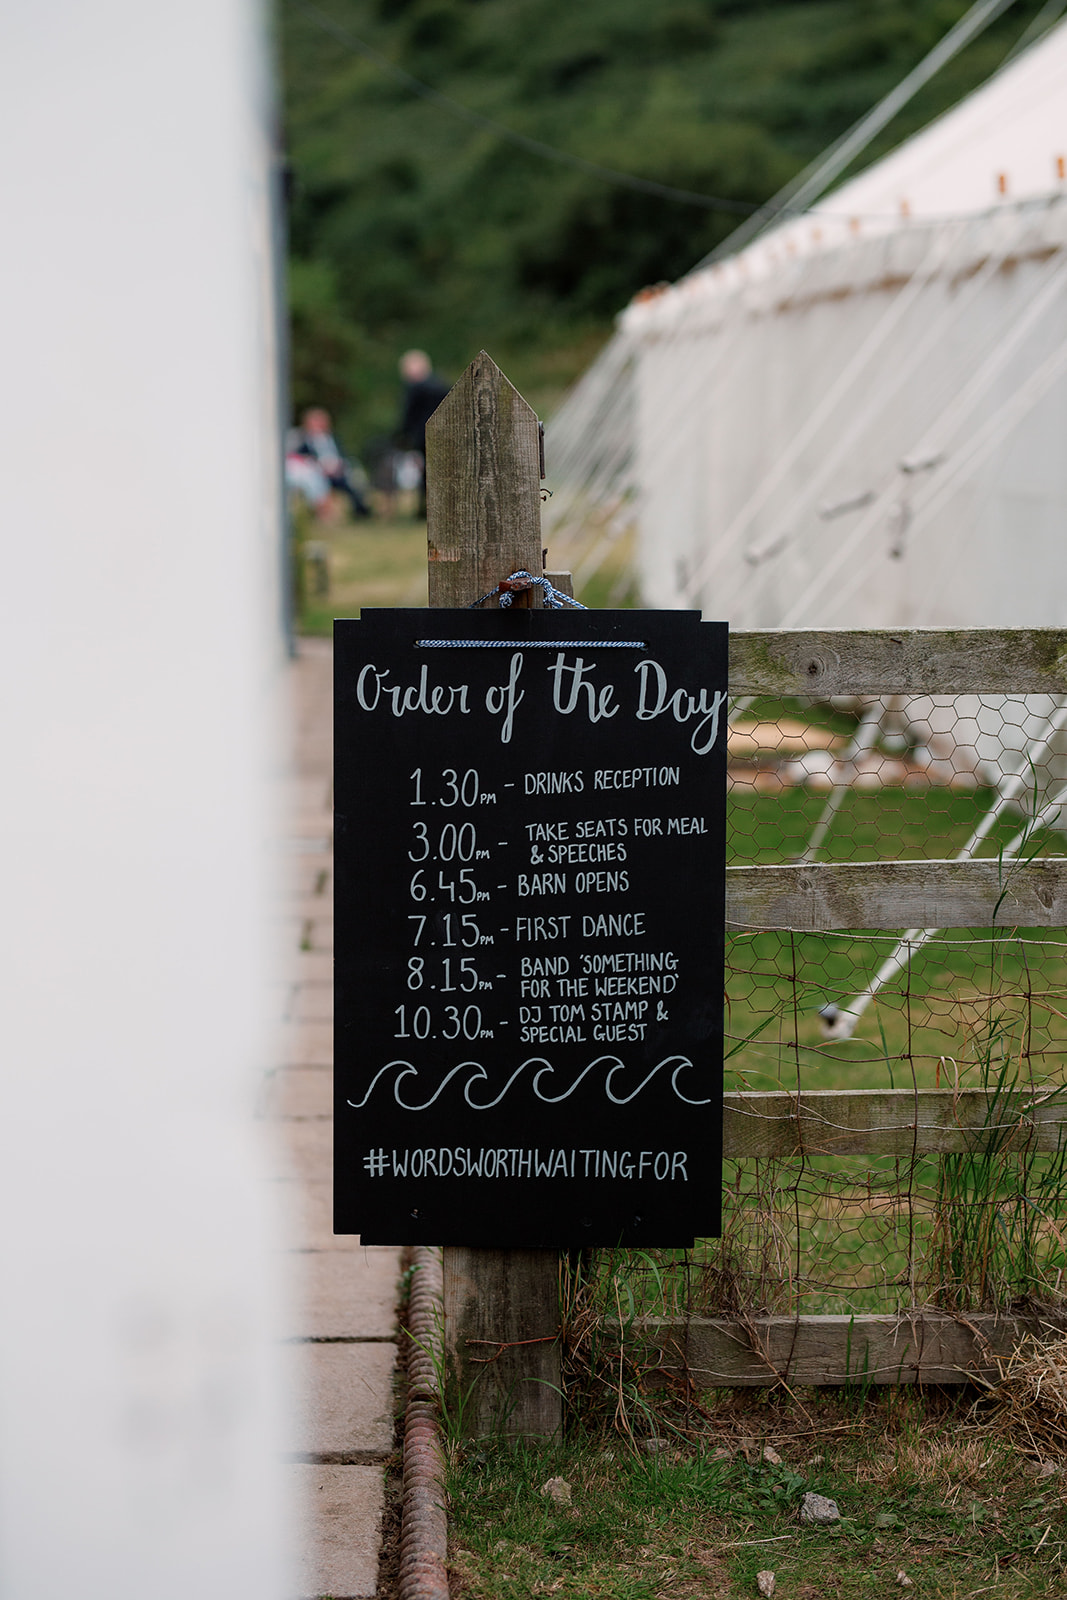 Order of the Day
1.30PM - DRINKS RECEPTION
3.00PM - TAKE SEATS FOR MEAL
& SPEECHES
6.45PM - BARN OPENS
7.15PM - FIRST DANCE
8.15PM - BAND 'SOMETHING
FOR THE WEEKEND'
10.30PM - DJ TOM STAMP &
SPECIAL GUEST
#WORDSWORTHWAITINGFOR